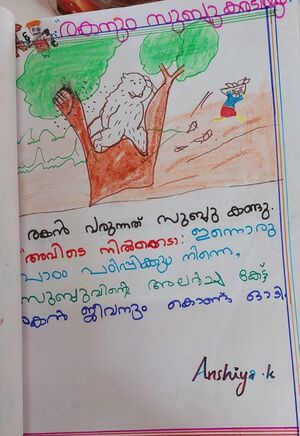 "രകനും സുബ്ബു കരടിയും"
രകൻ വരുന്നത് സുബ്ബു കണ്ടു.
"അവിടെ നിൽക്കെടാ: ഇന്നൊരു
പാഠം പഠിപ്പിക്കും നിന്നെ,
സുബ്ബുവിന്റെ അലർച്ച കേട്ട്
രകൻ ജീവനും കൊണ്ട് ഓടി.
Anshiya.k